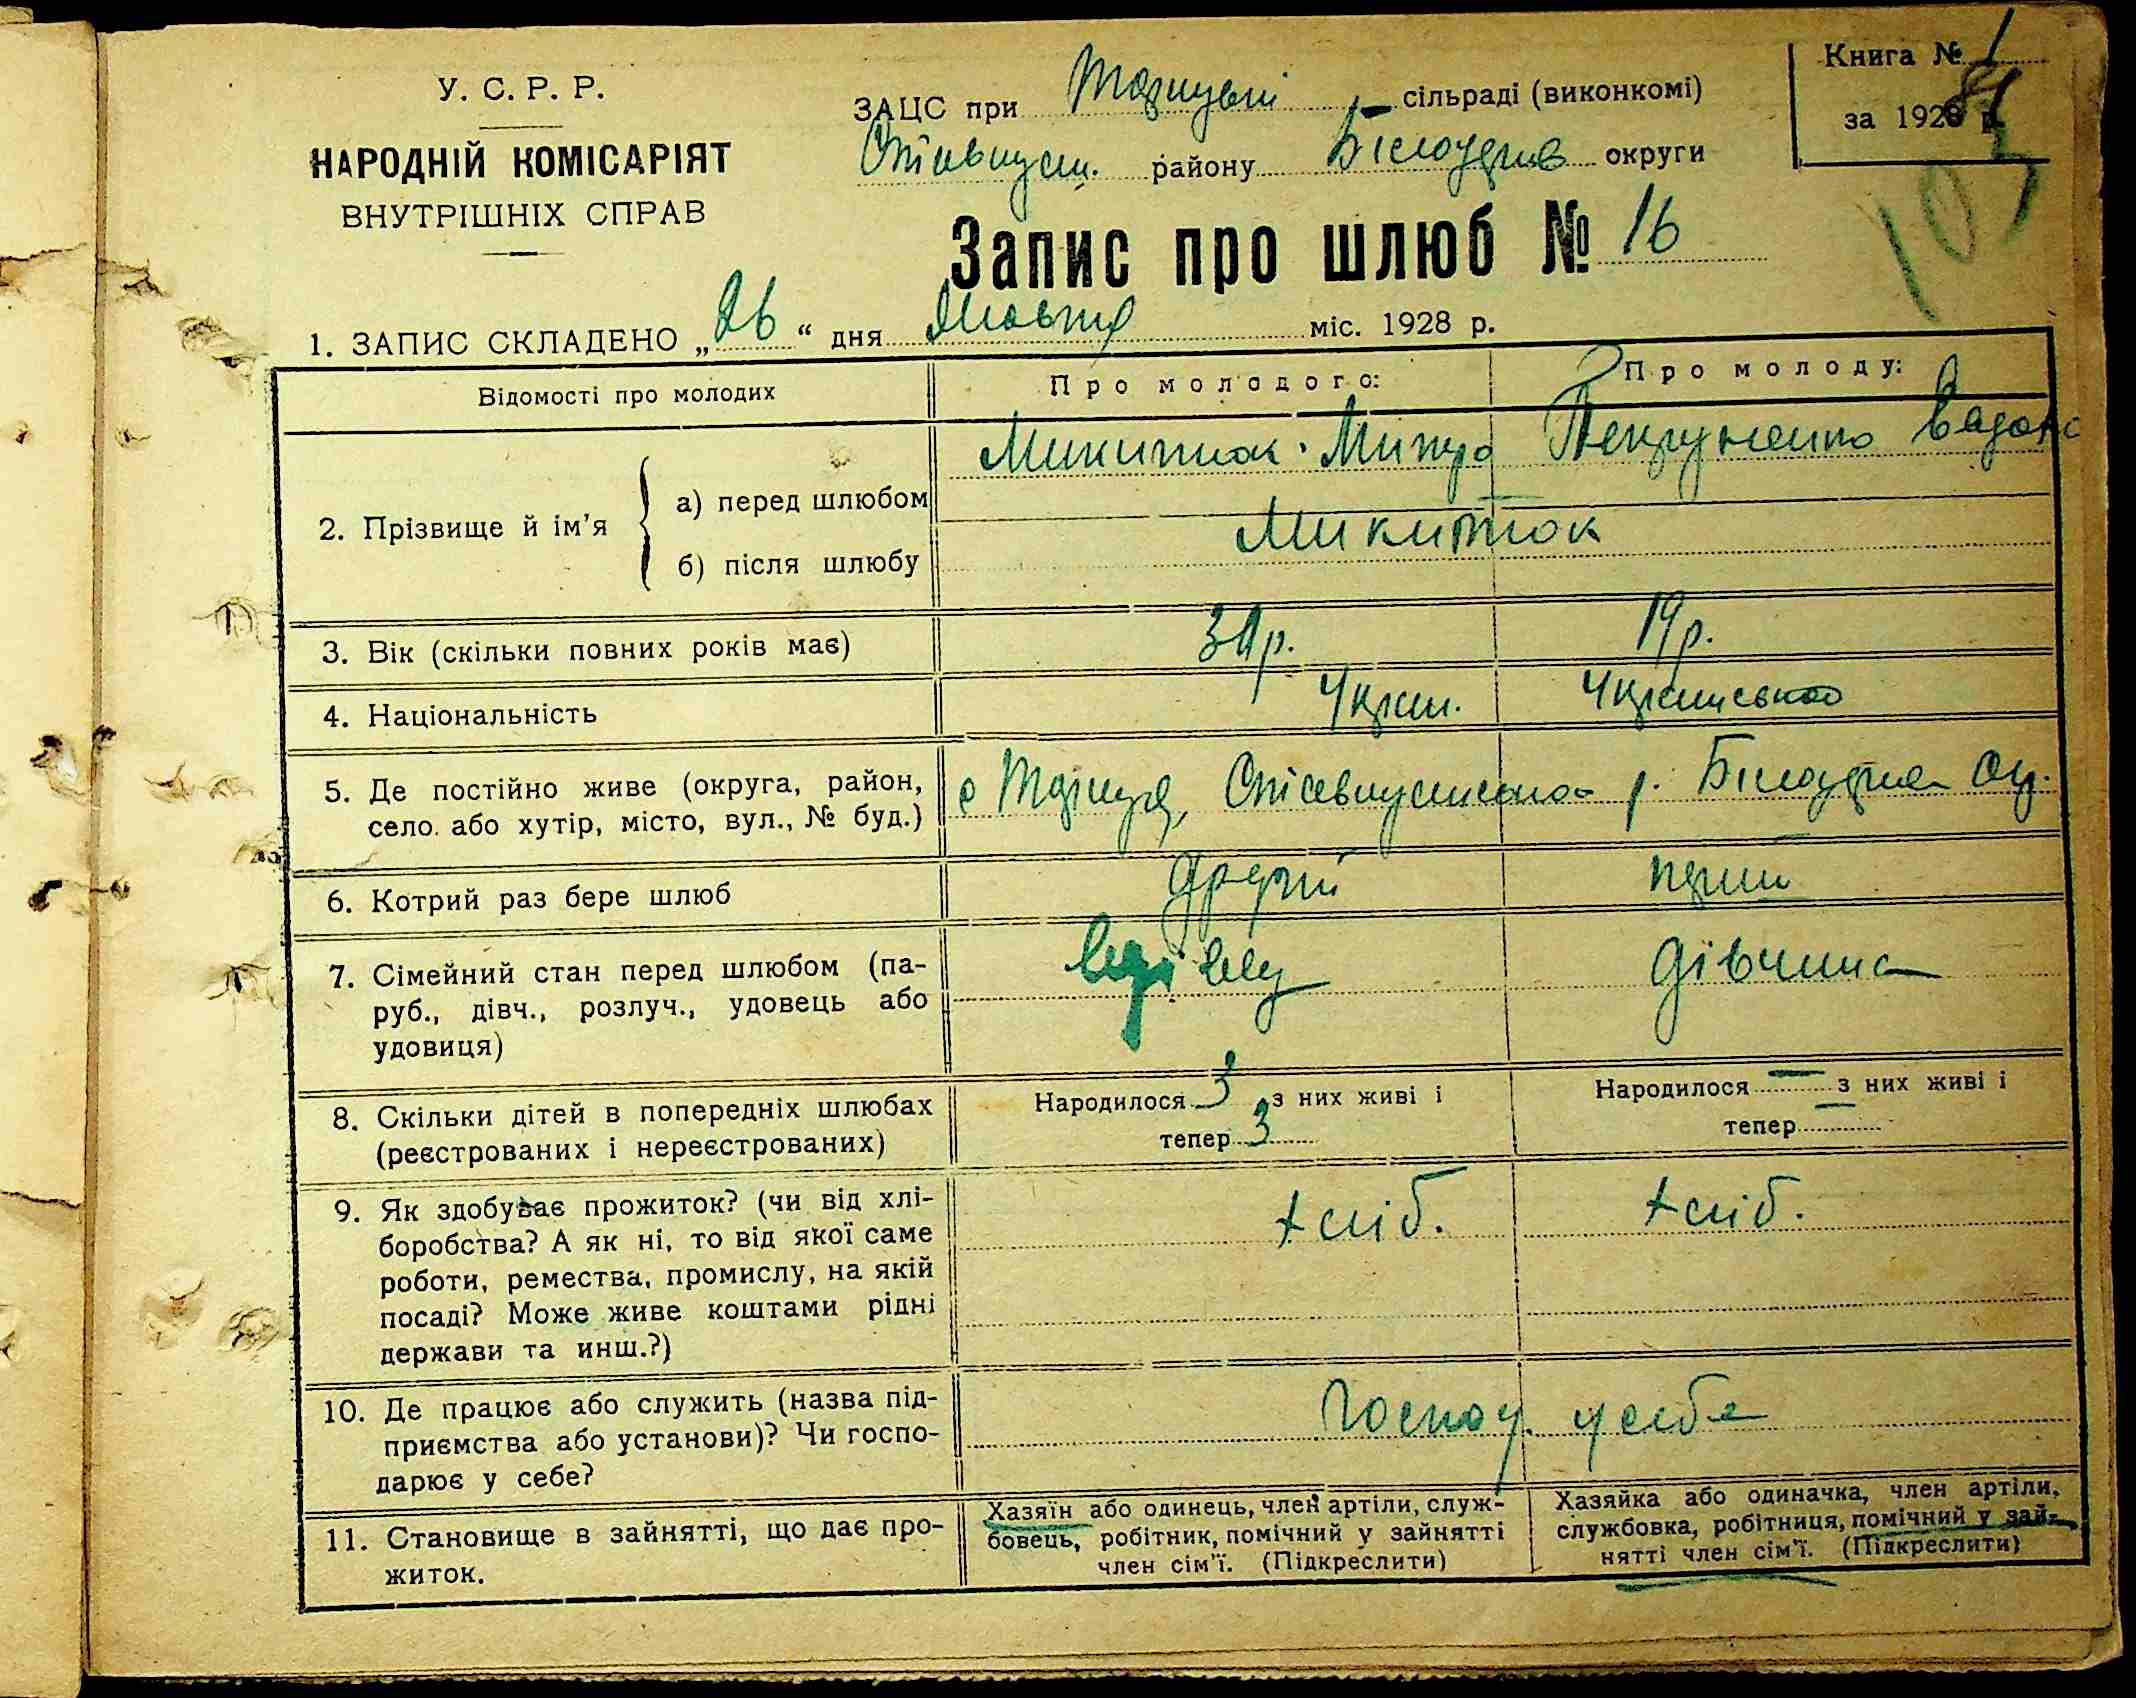 У. С. Р. Р.
НАРОДНІЙ КОМІСАРІЯТ
ВНУТРІШНІХ СПРАВ
ЗАЦС при сільраді (виконкомі)
району округи
Книга № 1
за 1928 р.
Запис про шлюб № 16
107
1. ЗАПИС СКЛАДЕНО „26“ дня Жовтня міс. 1928 р.
Відомості про молодих
Про молодого:
Про молоду:
2. Прізвище й ім’я
а) перед шлюбом
Микитюк Митро
б) після шлюбу
Микитюк
3. Вік (скільки повних років має)
р.
19 р.
4. Національність
Украї.
Українська
5. Де постійно живе (округа, район,
село. або хутір, місто, вул., № буд.)
р.
6. Котрий раз бере шлюб
другий
перший
7. Сімейний стан перед шлюбом (па-
руб., дівч., розлуч., удовець або
удовиця)
дівчина
8. Скільки дітей в попередніх шлюбах
(реєстрованих і нереєстрованих)
Народилося 3 з них живі і
тепер 3
Народилося — з них живі і
тепер —
9. Як здобуває прожиток? (чи від хлі-
боробства? А як ні, то від якої саме
роботи, ремества, промислу, на якій
посаді? Може живе коштами рідні
держави та инш.?)
хліб.
хліб.
10. Де працює або служить (назва під-
приємства або установи)? Чи госпо-
дарює у себе?
Господ. у себе
11. Становище в зайнятті, що дає про-
житок.
Хазяїн або одинець, член артіли, служ-
бовець, робітник, помічний у зайнятті
член сім’ї. (Підкреслити)
Хазяйка або одиначка, член артіли,
службовка, робітниця, помічний у зай-
нятті член сім’ї. (Підкреслити)